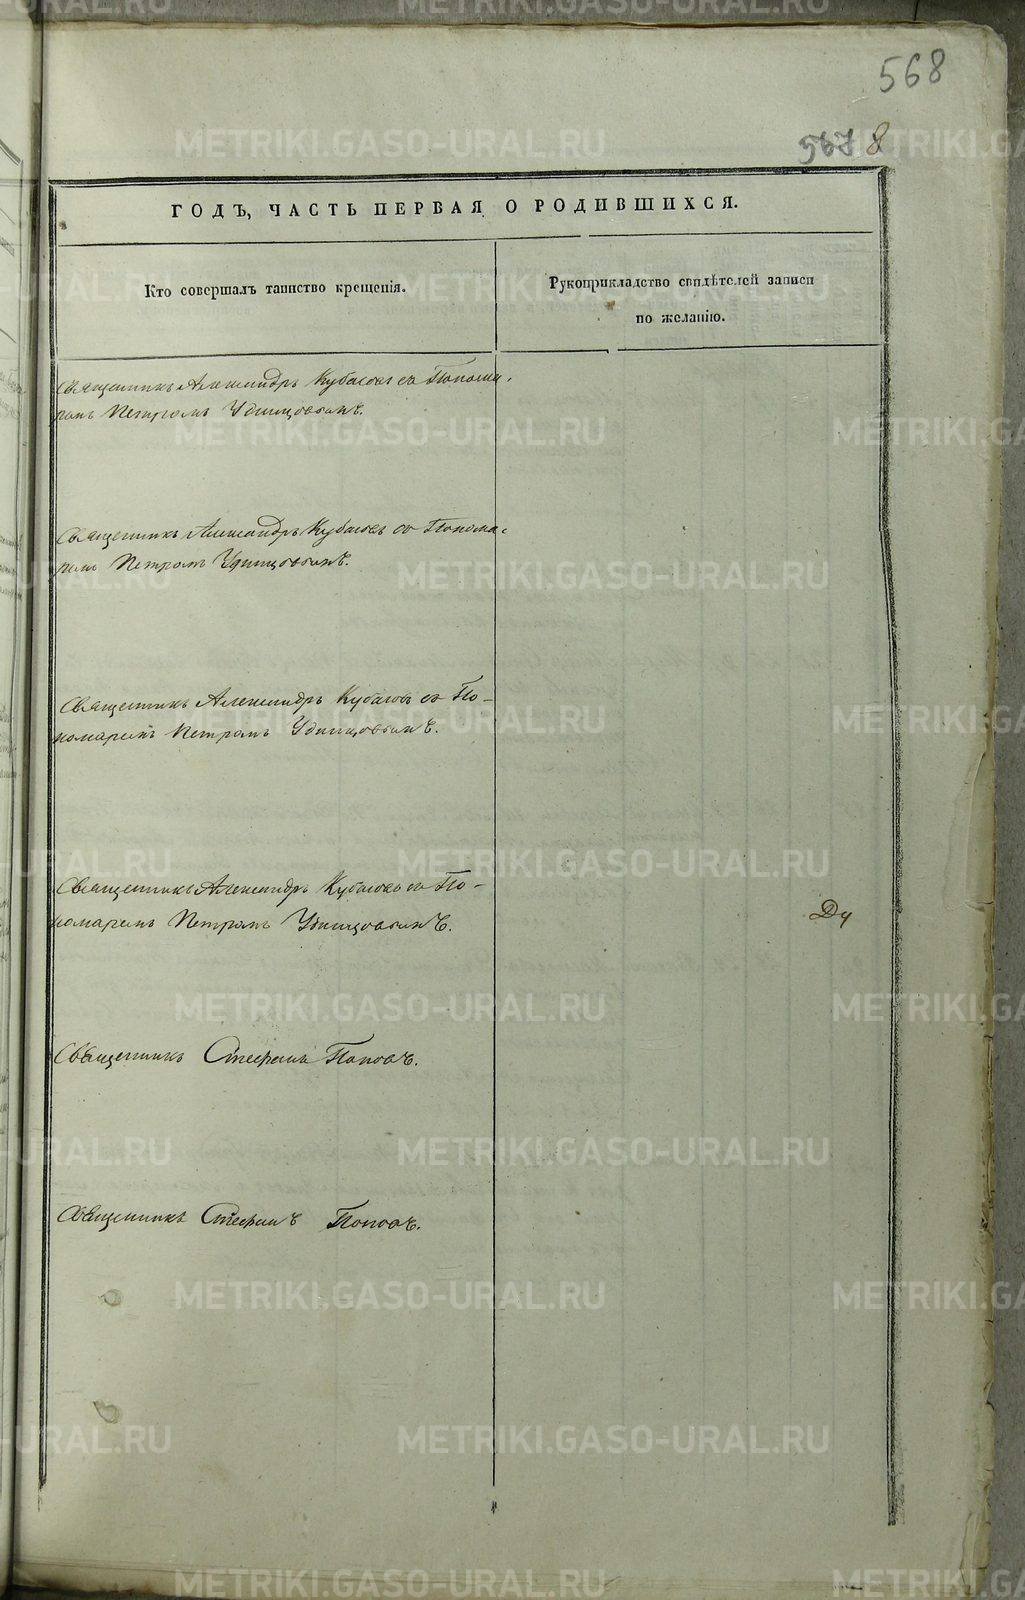 568
567 8
ГОДЪ, ЧАСТЬ ПЕРВАЯ О РОДИВШИХСЯ.
Кто совершалъ таинство крещенія.
Рукоприкладство свидѣтелей записи
по желанію.
Священникъ Александръ Кубасовъ съ Понома-
ремъ Петромъ Удинцовымъ.
Священникъ Александръ Кубасовъ съ Понома-
ремъ Петромъ Удинцовымъ.
Священникъ Александръ Кубасовъ съ По-
номаремъ Петромъ Удинцовымъ.
Священникъ Александръ Кубасовъ съ По-
номаремъ Петромъ Удинцовымъ.
Ду
Священникъ Стефанъ Поповъ.
Священникъ Стефанъ Поповъ.
METRIKI.GASO-URAL.RU